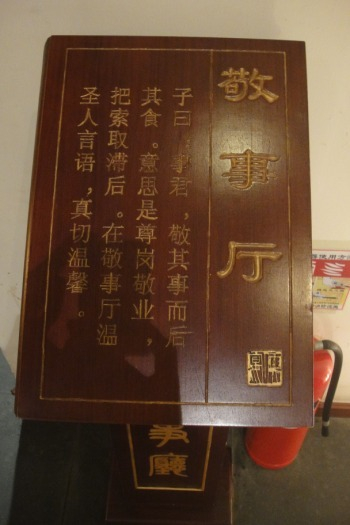 敬事厅
子曰:事君,敬其事而后
其食。意思是尊岗敬业,
把索取滞后。在敬事厅温
圣人言语,真切温馨。
事廳